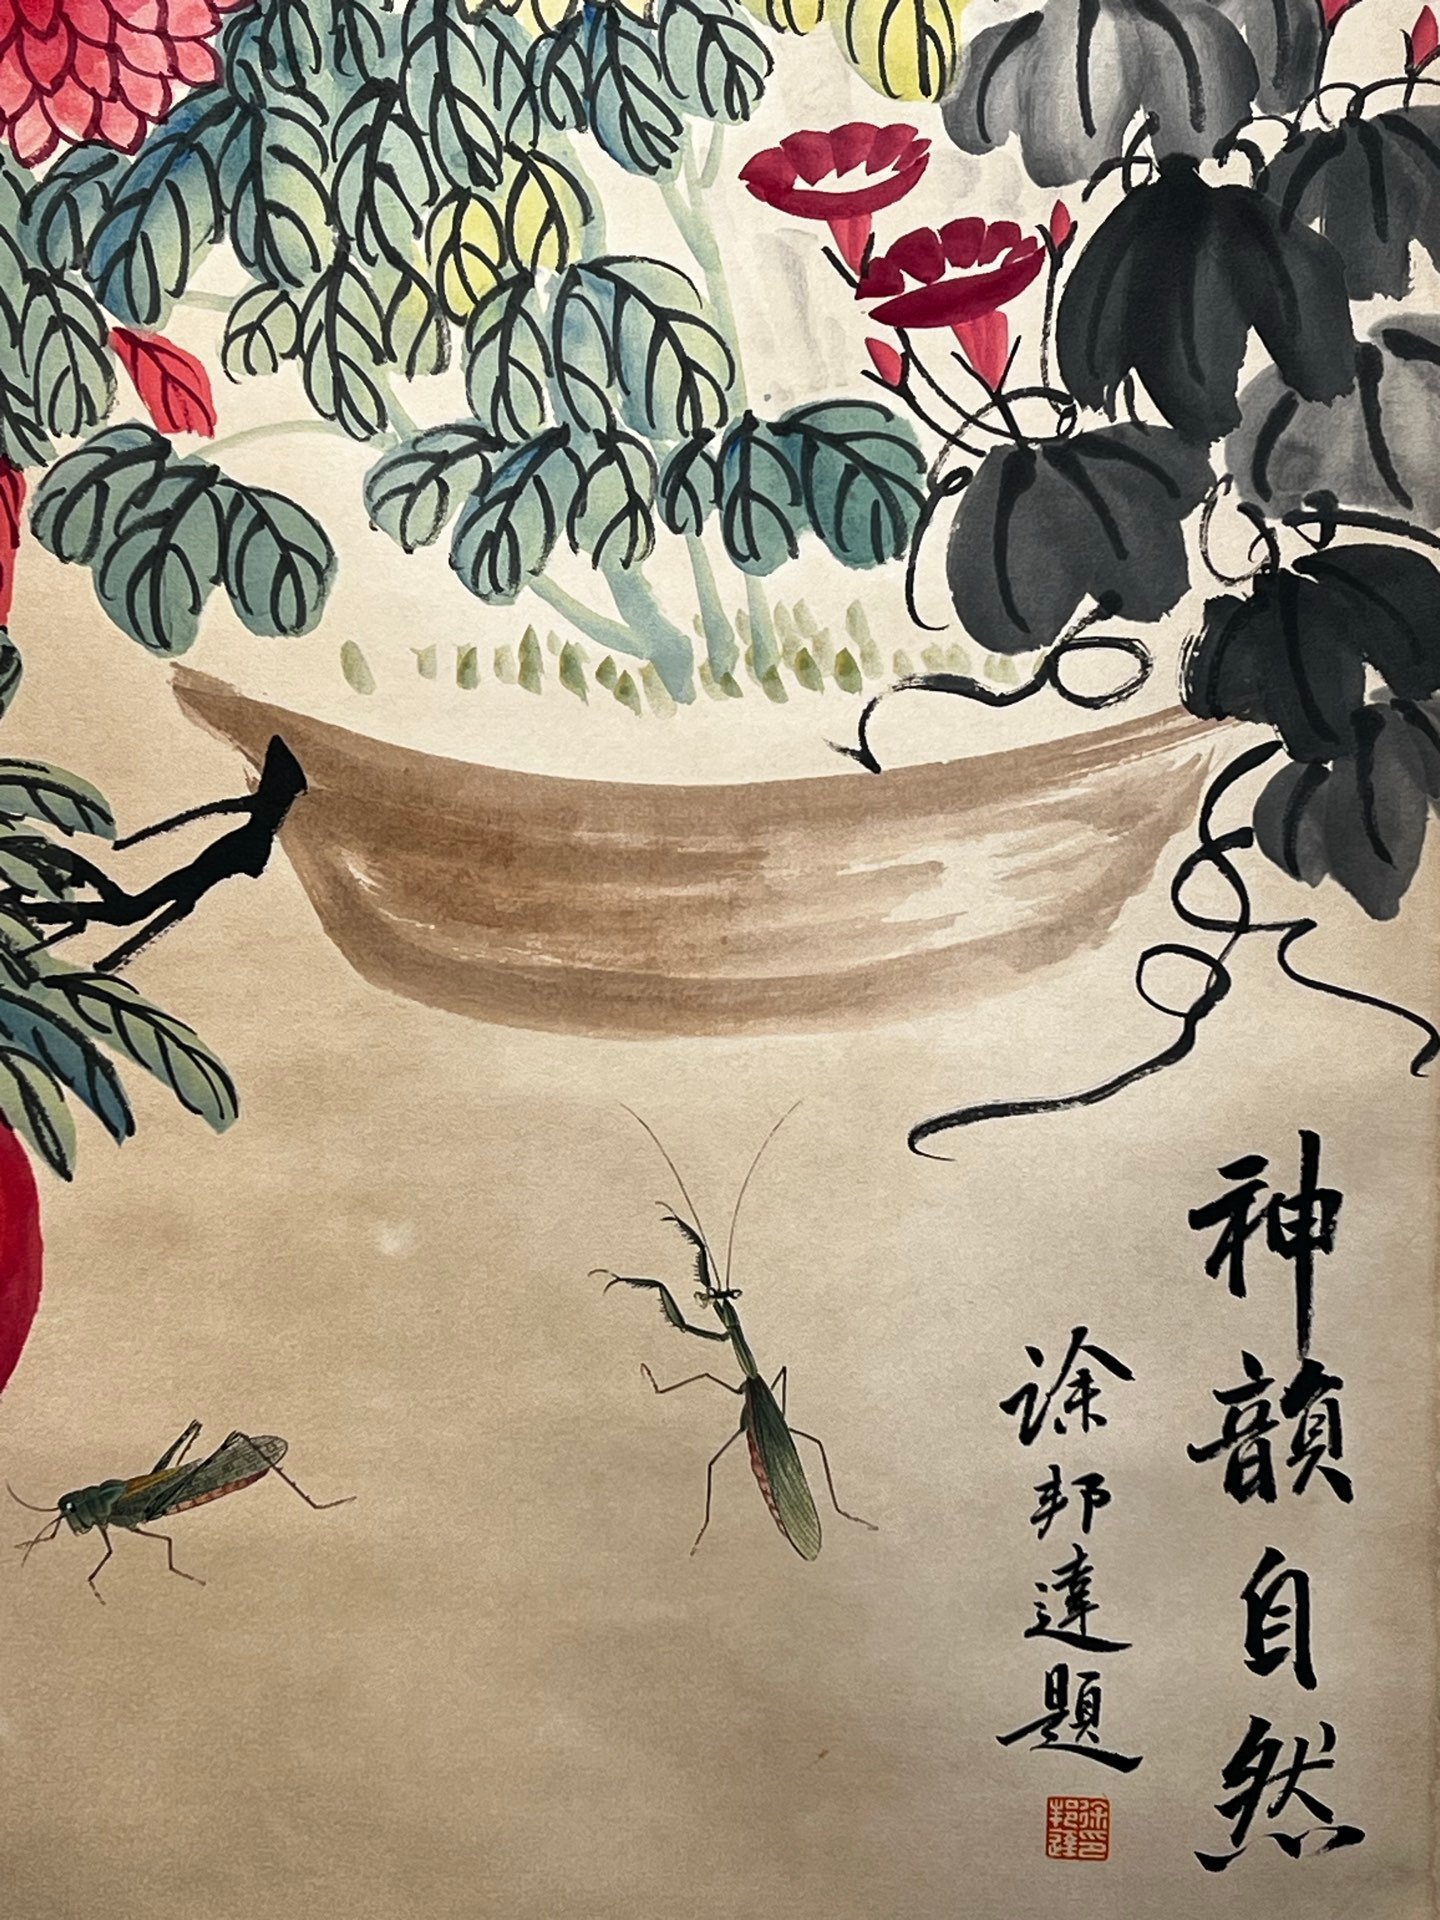 神韻自然
徐邦達題
徐邦達印